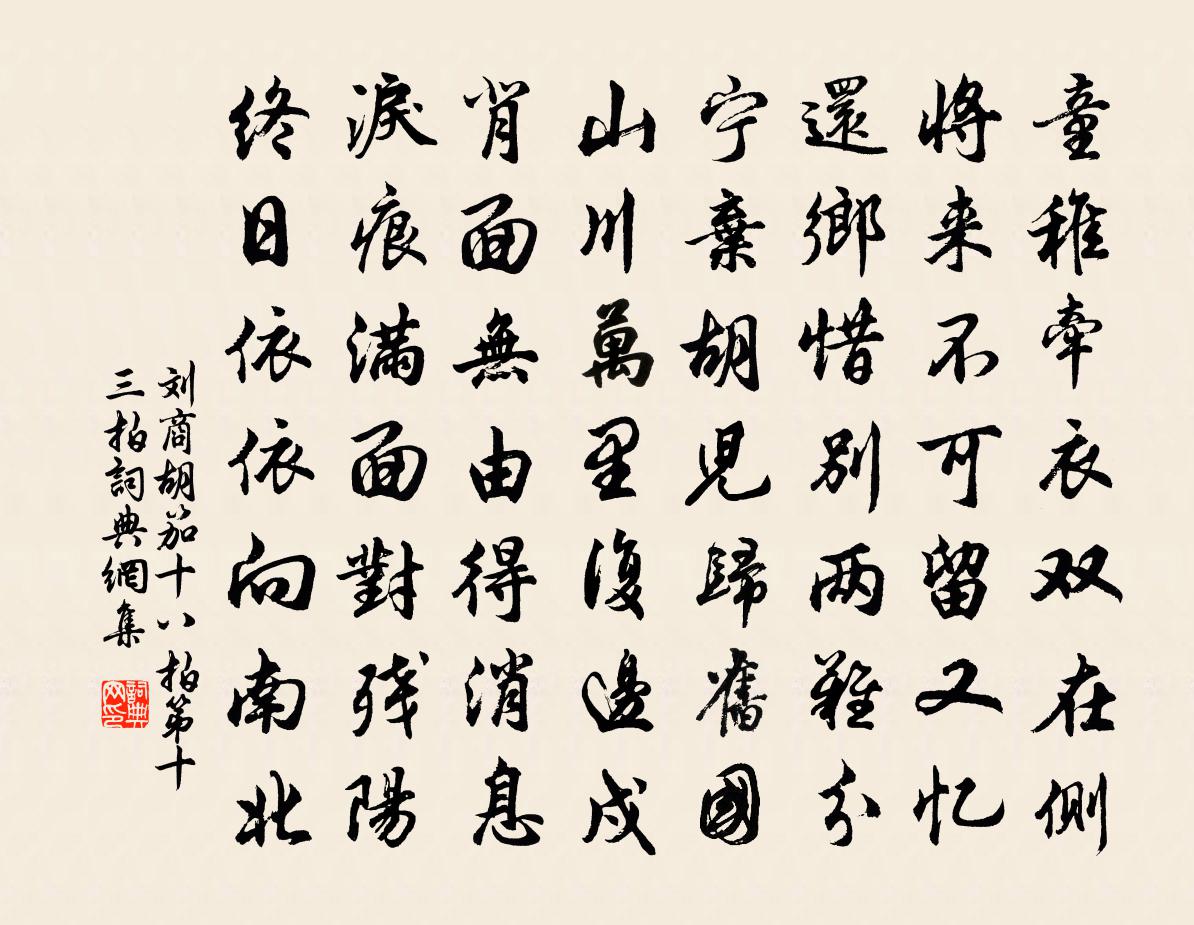 童稚牽衣双在側
將来不可留又忆
還鄉惜别两難分
宁棄胡児歸舊國
山川萬里復邊戍
背面無由得消息
淚痕滿面對残陽
终日依依向南北
刘商胡笳十八拍第十
三拍詞典網集
詞典网印